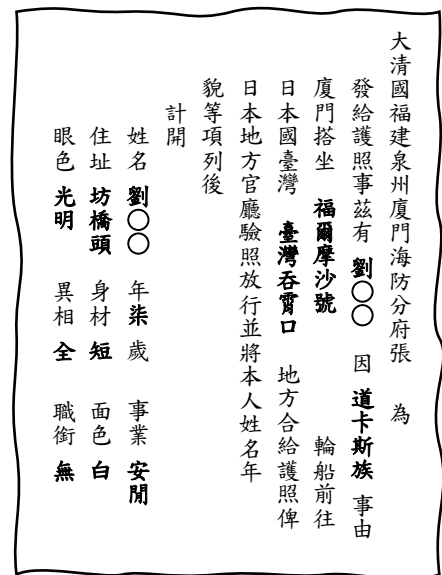 大清國福建泉州廈門海防分府張　為
發給護照事茲有　劉○○　因　道卡斯族　事由
廈門搭坐　福爾摩沙號　輪船前往
日本國臺灣　臺灣吞霄口　地方合給護照俾
日本地方官廳驗照放行並將本人姓名年
貌等項列後
計開
姓名　劉○○　年柒歲　事業　安閒
住址　坊橋頭　身材　短　面色　白
眼色　光明　異相　全　職銜　無